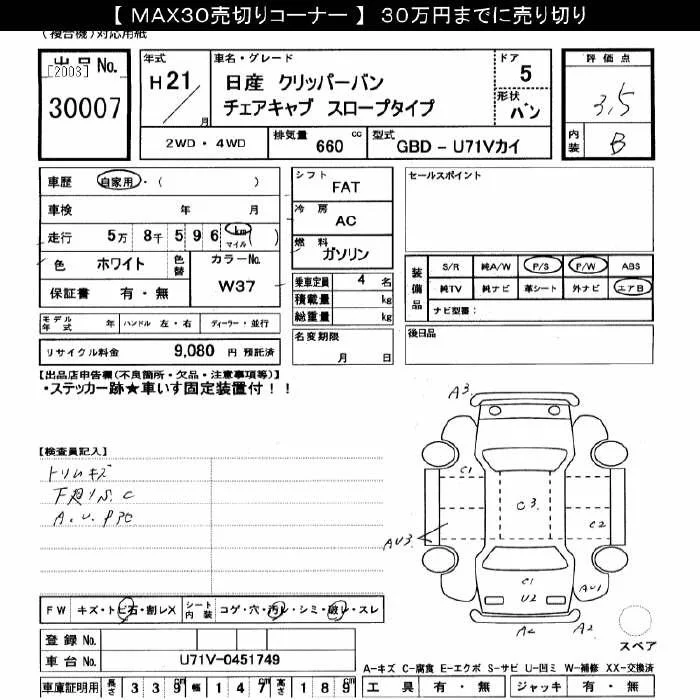 【 MAX30売切りコーナー 】 30万円までに売り切り
(複合機)対応用紙
出品 No.
[2003]
30007
年式
H21
月
車名・グレード
日産 クリッパーバン
チェアキャブ スロープタイプ
ドア
5
形状
バン
評価点
3.5
内装
B
2WD・4WD
排気量
660 cc
型式
GBD - U71Vカイ
車歴 自家用・( )
車検 年 月
走行 5万 8千 5 9 6 km マイル ( )
色 ホワイト 色替
カラーNo.
W37
保証書 有・無
シフト
FAT
冷房
AC
燃料
ガソリン
乗車定員 4 名
積載量 kg
総重量 kg
セールスポイント
装備品
S/R 純A/W P/S P/W ABS
純TV 純ナビ 革シート 外ナビ エアB
ナビ型番:
モデル年式 年 ハンドル 左・右 ディーラー・並行
名変期限
月 日
後日品
リサイクル料金 9,080 円 預託済
【出品店申告欄(不良箇所・欠品・注意事項等)】
・ステッカー跡★車いす固定装置付！！
【検査員記入】
トリムキズ
下廻りS.C
A3
C1
C3
C2
AU3
C1
U2
AU1
A2
A2
スペア
FW キズ・トビ石・割レX
シート内装 コゲ・穴・汚レ・シミ・破レ・スレ
登録 No.
車台 No. U71V-0451749
A-キズ C-腐食 E-エクボ S-サビ U-凹ミ W-補修 XX-交換済
車庫証明用 長さ 3 3 9 幅 1 4 7 高さ 1 8 9
工具 有・無 ジャッキ 有・無